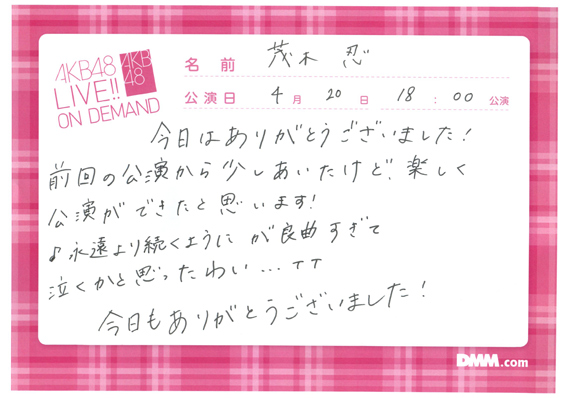 AKB48
LIVE!!
ON DEMAND
AKB
48
名前 茂木 忍
公演日 4月 20日 18:00公演
今日はありがとうございました!
前回の公演から少しあいたけど、楽しく
公演ができたと思います!
♪永遠より続くように が良曲すぎて
泣くかと思ったわい...TT
今日もありがとうございました!
DMM.com